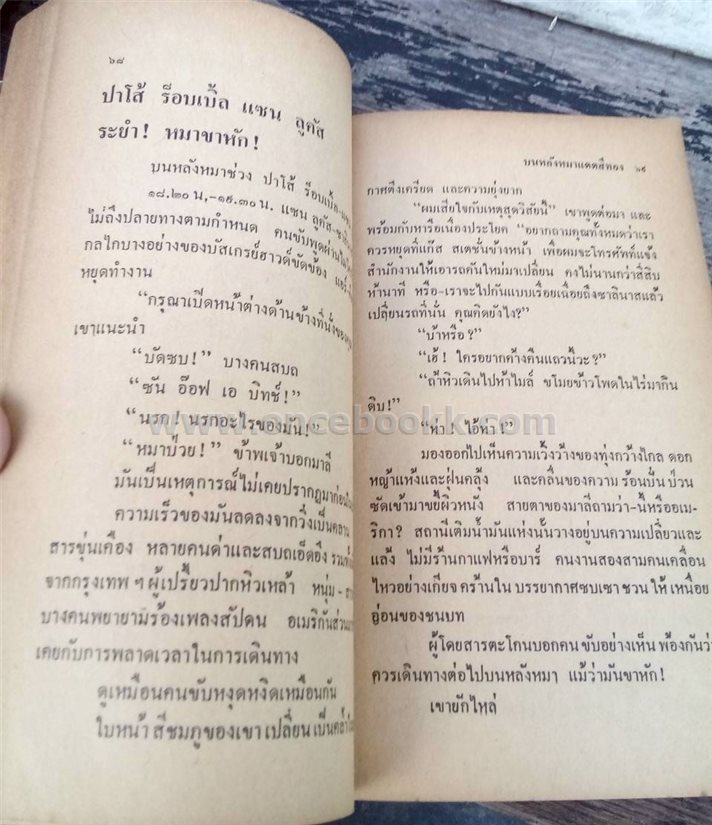 ๖๘
ปาโส้ ร็อบเบิ้ล แซน ลูคัส
ระยำ! หมาขาหัก!
บนหลังหมาช่วง ปาโส้ ร็อบเบิ้ล-แซน
๑๘.๒๐ น.-๑๙.๓๐ น. แซน ลูคัส-ซาลินัส
ไม่ถึงปลายทางตามกำหนด คนขับพูดผ่านไมโคร
กลไกบางอย่างของบัสเกรย์ฮาวด์ขัดข้อง แอร์
หยุดทำงาน
“กรุณาเปิดหน้าต่างด้านข้างที่นั่งของคุณ
เขาแนะนำ
“บัดซบ!” บางคนสบถ
“ซัน อ๊อฟ เอ บิทช์!”
“นรก! นรกอะไรของมัน!”
“หมาป่วย!” ข้าพเจ้าบอกมาลี
มันเป็นเหตุการณ์ไม่เคยปรากฏมาก่อน
ความเร็วของมันลดลงจากวิ่งเป็นคลาน
สารขุ่นเคือง หลายคนด่าและสบถเอ็ดอึง รวม
จากกรุงเทพ ฯ ผู้เปรี้ยวปากหิวเหล้า หนุ่ม-สาว
บางคนพยายามร้องเพลงสัปดน อเมริกันส่วน
เคยกับการพลาดเวลาในการเดินทาง
ดูเหมือนคนขับหงุดหงิดเหมือนกัน
ใบหน้าสีชมภูของเขาเปลี่ยนเป็นคล้ำ
บนหลังหมาแดดสีทอง ๖๙
กาศตึงเครียด และความยุ่งยาก
“ผมเสียใจกับเหตุสุดวิสัยนี้” เขาพูดต่อมา และ
พร้อมกับหารือเนื่องประโยค “อยากถามคุณทั้งหมดว่าเรา
ควรหยุดที่แก๊ส สเตชั่นข้างหน้า เพื่อผมจะโทรศัพท์แจ้ง
สำนักงานให้เอารถคันใหม่มาเปลี่ยน คงไม่นานกว่าสี่สิบ
ห้านาที หรือ-เราจะไปกันแบบเรื่อยเฉื่อยถึงซาลินาสแล้ว
เปลี่ยนรถที่นั่น คุณคิดยังไง?”
“บ้าหรือ?”
“เฮ้! ใครอยากค้างคืนแถวนี้วะ?”
“ถ้าหิวเดินไปห้าไมล์ ขโมยข้าวโพดในไร่มากิน
ดิบ!”
“ห่า! ไอ้ห่า!”
มองออกไปเห็นความเวิ้งว้างของทุ่งกว้างไกล ดอก
หญ้าแห้งและฝุ่นคลุ้ง และคลื่นของความร้อนปั่นป่วน
ซัดเข้ามาขยี้ผิวหนัง สายตาของมาลีถามว่า-นี้หรืออเม-
ริกา? สถานีเติมน้ำมันแห่งนั้นวางอยู่บนความเปลี่ยวและ
แล้ง ไม่มีร้านกาแฟหรือบาร์ คนงานสองสามคนเคลื่อน
ไหวอย่างเกียจคร้านในบรรยากาศซบเซา ชวนให้เหนื่อย
อ่อนของชนบท
ผู้โดยสารตะโกนบอกคนขับอย่างเห็นพ้องกันว่า
ควรเดินทางต่อไปบนหลังหมา แม้ว่ามันขาหัก!
เขายักไหล่
www.oncebookk.com